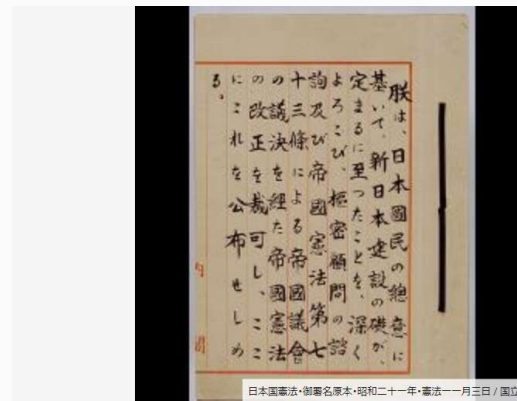 朕は、日本國民の總意に
基いて、新日本建設の礎が、
定まるに至つたことを、深く
よろこび、樞密顧問の諮
詢及び帝國憲法第七
十三條による帝國議會
の議決を経た帝國憲法
の改正を裁可し、ここ
にこれを公布せしめ
る。
内閣
日本国憲法・御署名原本・昭和二十一年・憲法一一月三日 / 国立